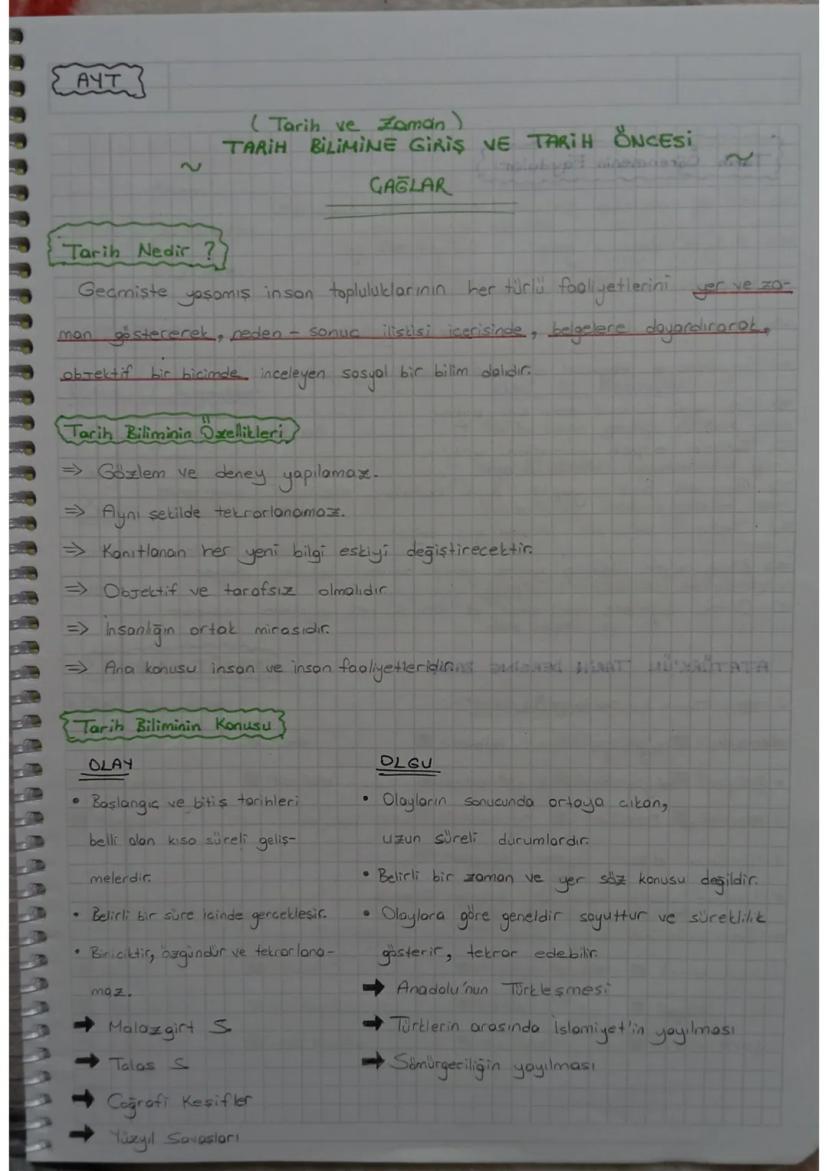 AYT
(Tarih ve Zaman)
TARİH BİLİMİNE GİRİŞ VE TARİH ÖNCESİ
~ ~
ÇAĞLAR
Tarih Nedir ?
Geçmişte yaşamış insan topluluklarının her türlü faaliyetlerini yer ve za-
man göstererek, neden - sonuç ilişkisi içerisinde, belgelere dayandırarak,
objektif bir biçimde inceleyen sosyal bir bilim dalıdır.
Tarih Biliminin Özellikleri
⇒ Gözlem ve deney yapılamaz.
⇒ Aynı şekilde tekrarlanamaz.
⇒ Kanıtlanan her yeni bilgi eskiyi değiştirecektir.
⇒ Objektif ve tarafsız olmalıdır
⇒ İnsanlığın ortak mirasıdır.
⇒ Ana konusu insan ve insan faaliyetleridir.
Tarih Biliminin Konusu
OLAY
• Başlangıç ve bitiş tarihleri
belli olan kısa süreli geliş-
melerdir.
• Belirli bir süre içinde gerçekleşir.
• Biriciktir, özgündür ve tekrarlana-
maz.
➡ Malazgirt S
➡ Talas S
➡ Coğrafi Keşifler
➡ Yüzyıl Savaşları
OLGU
• Olayların sonucunda ortaya çıkan,
uzun süreli durumlardır.
• Belirli bir zaman ve yer söz konusu değildir.
• Olaylara göre geneldir soyuttur ve süreklilik
gösterir, tekrar edebilir.
➡ Anadolu'nun Türkleşmesi
➡ Türklerin arasında İslamiyet'in yayılması
➡ Sömürgeciliğin yayılması